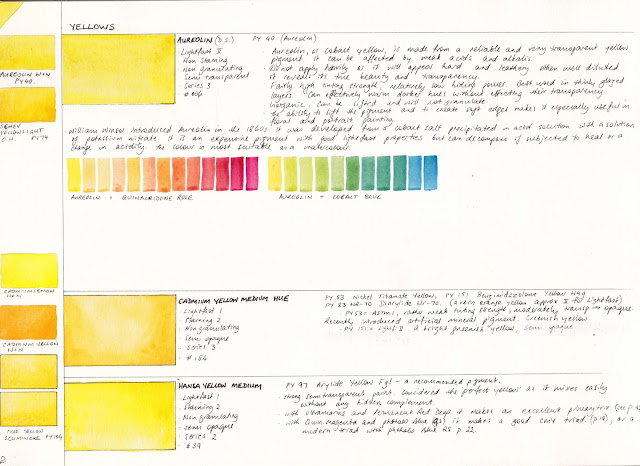 YELLOWS
AUREOLIN (D.S.) PY 40 (Aureolin)
· Lightfast II
Non Staining
Non granulating
Semi transparent
Series 3
# 106
· Aureolin, or cobalt yellow, is made from a reliable and very transparent yellow
pigment. It can be affected by weak acids and alkalis.
· Do not apply heavily as it will appear hard and leathery. When well diluted
it reveals its true beauty and transparency.
Fairly high tinting strength, relatively low hiding power. Best used in thinly glazed
layers. Can effectively warm darker hues without effecting their transparency
inorganic. Can be lifted and will not granulate.
The ability to lift the pigment and to create soft edges makes it especially useful in
floral and portrait painting.
William Winsor introduced Aureolin in the 1860s. It was developed from a cobalt salt precipitated in acid solution with a solution
of potassium nitrate. It is an expensive pigment with good lightfast properties but can decompose if subjected to heat or a
change in acidity. The colour is most suitable as a watercolour.
AUREOLIN W+N
PY40.
YELLOW LIGHT
PY74
AUREOLIN + QUINACRIDONE ROSE
AUREOLIN + COBALT BLUE
CADMIUM LEMON
W+N
CADMIUM YELLOW
W+N
CADMIUM YELLOW MEDIUM HUE
· Lightfast 1
· Staining 2
· Non granulating
· Semi opaque
· Series 3
· # 184
PY 53 Nickel Titanate Yellow, PY 151 Benzimidazolone Yellow H4G
PY 83 HR-70 Diarylide HR-70.
· PY53 = ASTM I, rather weak tinting strength, moderately transp → opaque
Recently introduced artificial mineral pigment. Greenish yellow.
· PY 151 = Light II. A bright greenish yellow, semi opaque
HANSA YELLOW MEDIUM
· Lightfast 1
· Staining 2
· Non granulating
· semi opaque
· Series 2
# 39
PY 97 Arylide Yellow FGL - A recommended pigment.
· strong semi transparent paint. Considered the 'perfect yellow' as it mixes easily
without any hidden complement.
· with Ultramarine and Permanent Red Deep it makes an excellent primary trio.
· with Quin. Magenta and phthalo blue (GS) it makes a good CMY triad. (p.19), or a
modern triad with phthalo Blue RS p 22.
PY154
2